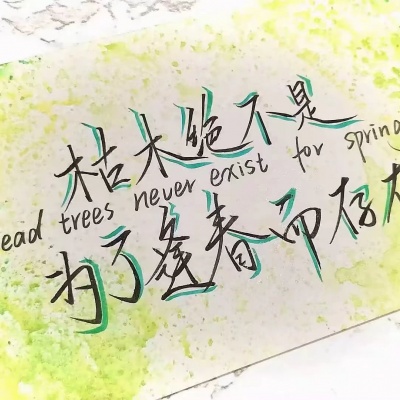 枯木绝不是
ead trees never exist for spring
为了逢春而存在